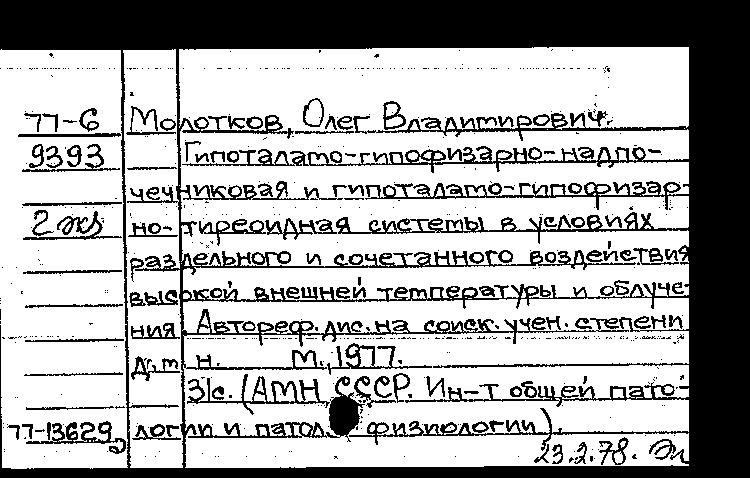 77-6 Молотков, Олег Владимирович.
9393 Гипоталамо-гипофизарно-надпо-
чечниковая и гипоталамо-гипофизар-
2 экз но-тиреоидная системы в условиях
раздельного и сочетанного воздействия
высокой внешней температуры и облуче-
ния. Автореф. дис. на соиск. учен. степени
д.м.н. М., 1977.
31с. (АМН СССР. Ин-т общей пато-
77-13629 логии и патол. физиологии).
23.2.78.